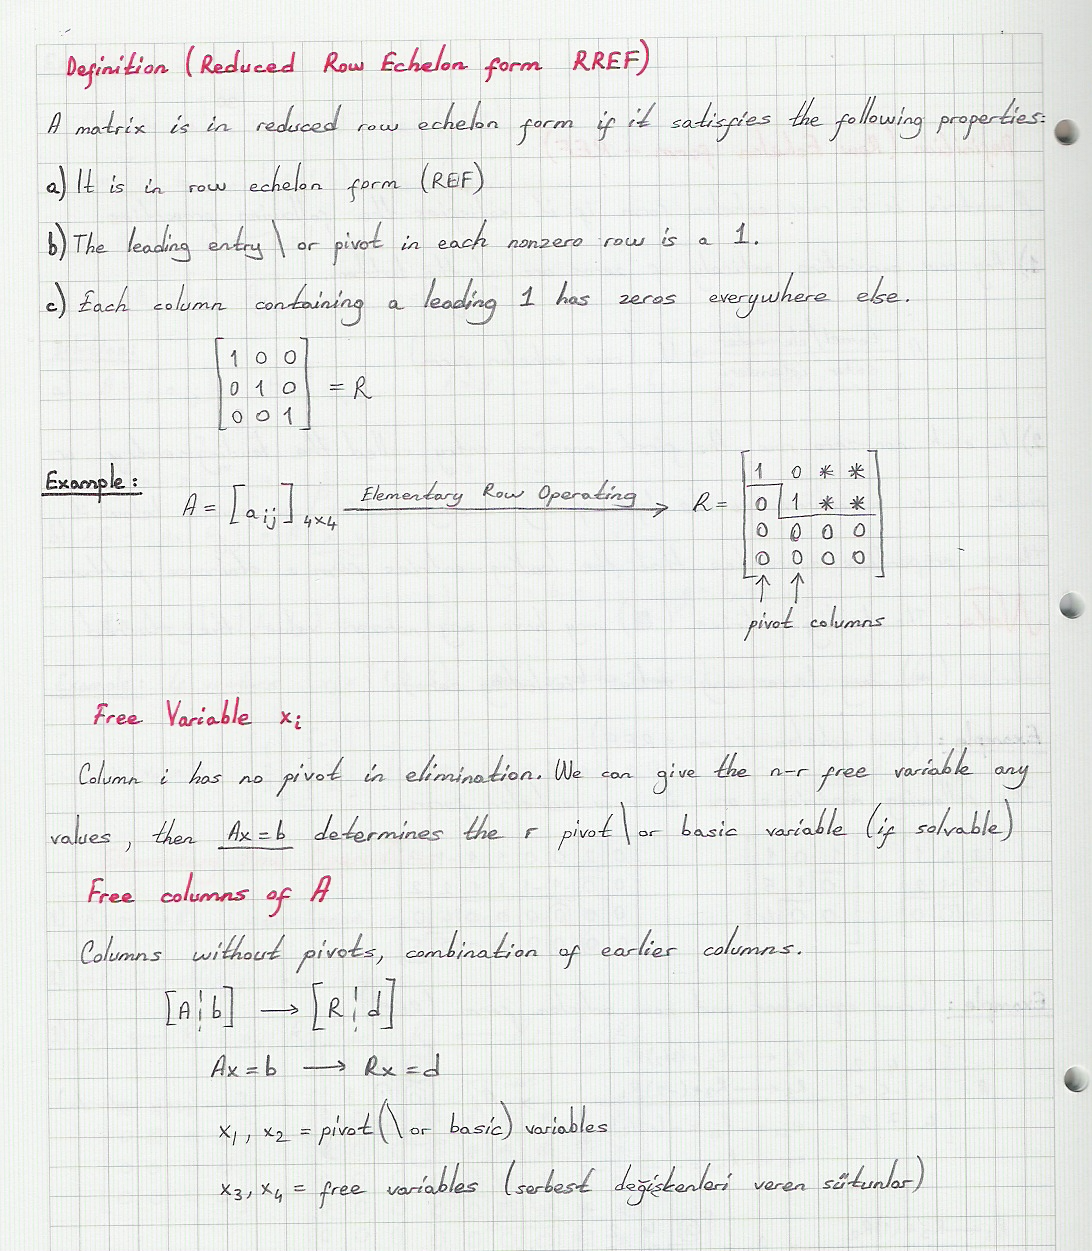 Definition (Reduced Row Echelon form RREF)
A matrix is in reduced row echelon form if it satisfies the following properties:
a) It is in row echelon form (REF)
b) The leading entry \ or pivot in each nonzero row is a 1.
c) Each column containing a leading 1 has zeros everywhere else.
[1 0 0
0 1 0 = R
0 0 1]
Example:
A = [aij]4x4 Elementary Row Operating → R =
[1 0 * *
0 1 * *
0 0 0 0
0 0 0 0]
↑ ↑
pivot columns
Free Variable xi
Column i has no pivot in elimination. We can give the n-r free variable any
values, then Ax=b determines the r pivot \ or basic variable (if solvable)
Free columns of A
Columns without pivots, combination of earlier columns.
[A¦b] → [R¦d]
Ax=b → Rx=d
x1, x2 = pivot (\ or basic) variables
x3, x4 = free variables (serbest değişkenleri veren sütunlar)